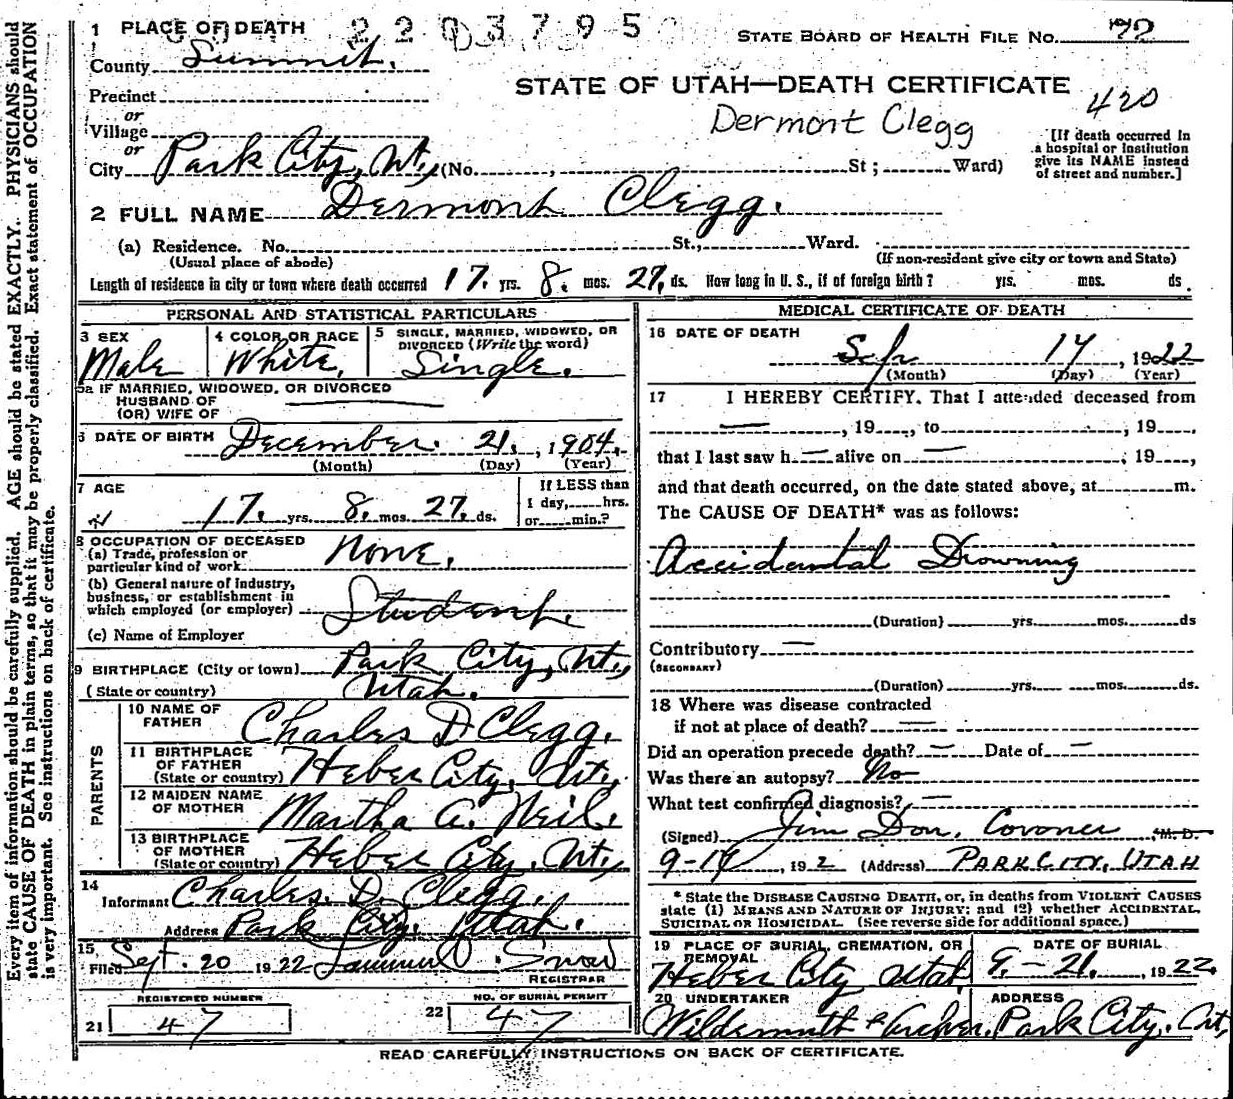 Every item of information should be carefully supplied. AGE should be stated EXACTLY. PHYSICIANS should
state CAUSE OF DEATH in plain terms, so that it may be properly classified. Exact statement of OCCUPATION
is very important. See instructions on back of certificate.
1 PLACE OF DEATH 2203795
STATE BOARD OF HEALTH FILE No. 72
County Summit.
STATE OF UTAH—DEATH CERTIFICATE
Precinct
420
or
Village
Dermont Clegg
or
City Park City, Ut, (No. , St ; Ward)
[If death occurred in
a hospital or institution
give its NAME instead
of street and number.]
2 FULL NAME Dermont Clegg.
(a) Residence. No. St., Ward.
(Usual place of abode) (If non-resident give city or town and State)
Length of residence in city or town where death occurred 17. yrs. 8. mos. 27. ds. How long in U. S., if of foreign birth ? yrs. mos. ds.
PERSONAL AND STATISTICAL PARTICULARS
3 SEX Male
4 COLOR OR RACE White,
5 SINGLE, MARRIED, WIDOWED, OR
DIVORCED (Write the word)
Single.
5a IF MARRIED, WIDOWED, OR DIVORCED
HUSBAND OF
(OR) WIFE OF
6 DATE OF BIRTH December. 21., 1904.
(Month) (Day) (Year)
7 AGE
17. yrs. 8. mos. 27. ds.
If LESS than
1 day, hrs.
or min.?
8 OCCUPATION OF DECEASED
(a) Trade, profession or
particular kind of work None.
(b) General nature of Industry,
business, or establishment in
which employed (or employer) Student.
(c) Name of Employer
9 BIRTHPLACE (City or town) Park City, Ut.,
(State or country) Utah.
PARENTS
10 NAME OF
FATHER Charles D Clegg.
11 BIRTHPLACE
OF FATHER
(State or country) Heber City, Ut.,
12 MAIDEN NAME
OF MOTHER Martha A. Neil.
13 BIRTHPLACE
OF MOTHER
(State or country) Heber City, Ut.,
14
Informant Charles. D. Clegg.
Address Park City. Utah.
15
Filed Sept. 20 1922 Snow
REGISTRAR
REGISTERED NUMBER
21 47
NO. OF BURIAL PERMIT
22 47
MEDICAL CERTIFICATE OF DEATH
16 DATE OF DEATH
17, 1922
(Month) (Day) (Year)
17 I HEREBY CERTIFY, That I attended deceased from
—, 19 , to , 19 ,
that I last saw h — alive on — , 19 ,
and that death occurred, on the date stated above, at m.
The CAUSE OF DEATH* was as follows:
Accidental Drowning
(Duration) yrs. mos. ds
Contributory —
(SECONDARY)
(Duration) yrs. mos. ds.
18 Where was disease contracted
if not at place of death? —
Did an operation precede death? — Date of —
Was there an autopsy? No
What test confirmed diagnosis? —
(Signed) Jim Don, Coroner M. D.
9-19, 192 (Address) PARK CITY, UTAH
* State the DISEASE CAUSING DEATH, or, in deaths from VIOLENT CAUSES
state (1) MEANS AND NATURE OF INJURY; and (2) whether ACCIDENTAL,
SUICIDAL OR HOMICIDAL. (See reverse side for additional space.)
19 PLACE OF BURIAL, CREMATION, OR
REMOVAL
Heber City Utah
DATE OF BURIAL
9.-21., 1922.
20 UNDERTAKER
Wildemuth & Archer.
ADDRESS
Park City. Ut,
READ CAREFULLY INSTRUCTIONS ON BACK OF CERTIFICATE.